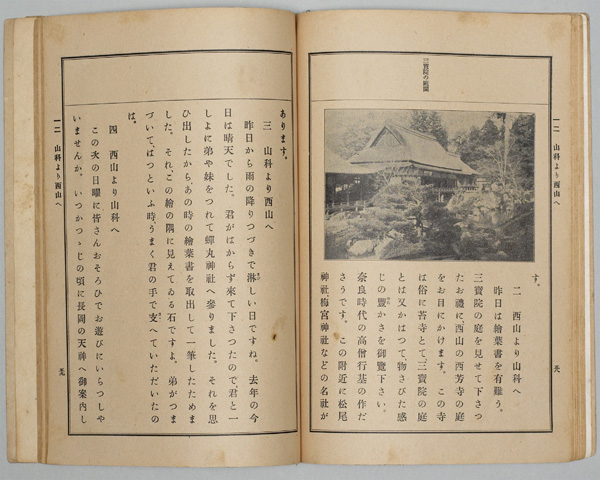 三寶院の庭園
す。
二 西山より山科へ
昨日は繪葉書を有難う。
三寶院の庭を見せて下さつ
たお禮に、西山の西芳寺の庭
をお目にかけます。この寺
は俗に苔寺とて、三寶院の庭
とは又かはつて、物さびた感
じの豐かさを御覽下さい。
奈良時代の高僧行基の作だ
さうです。この附近に松尾
神社梅宮神社などの名社が
一二 山科より西山へ
あります。
三 山科より西山へ
昨日から雨の降りつづきで淋しい日ですね。去年の今
日は晴天でした。君がはからず來て下さつたので、君と一
しよに弟や妹をつれて蟬丸神社へ參りました。それを思
ひ出したから、あの時の繪葉書を取出して一筆したためま
した。それ、この繪の隅に見えてゐる石ですよ。弟がつま
づいて、ばつといふ時、うまく君の手で支へていただいたの
は。
四 西山より山科へ
この次の日曜に皆さんおそろひでお遊びにいらつしや
いませんか。いつかつゝじの頃に長岡の天神へ御案内し
一二 山科より西山へ